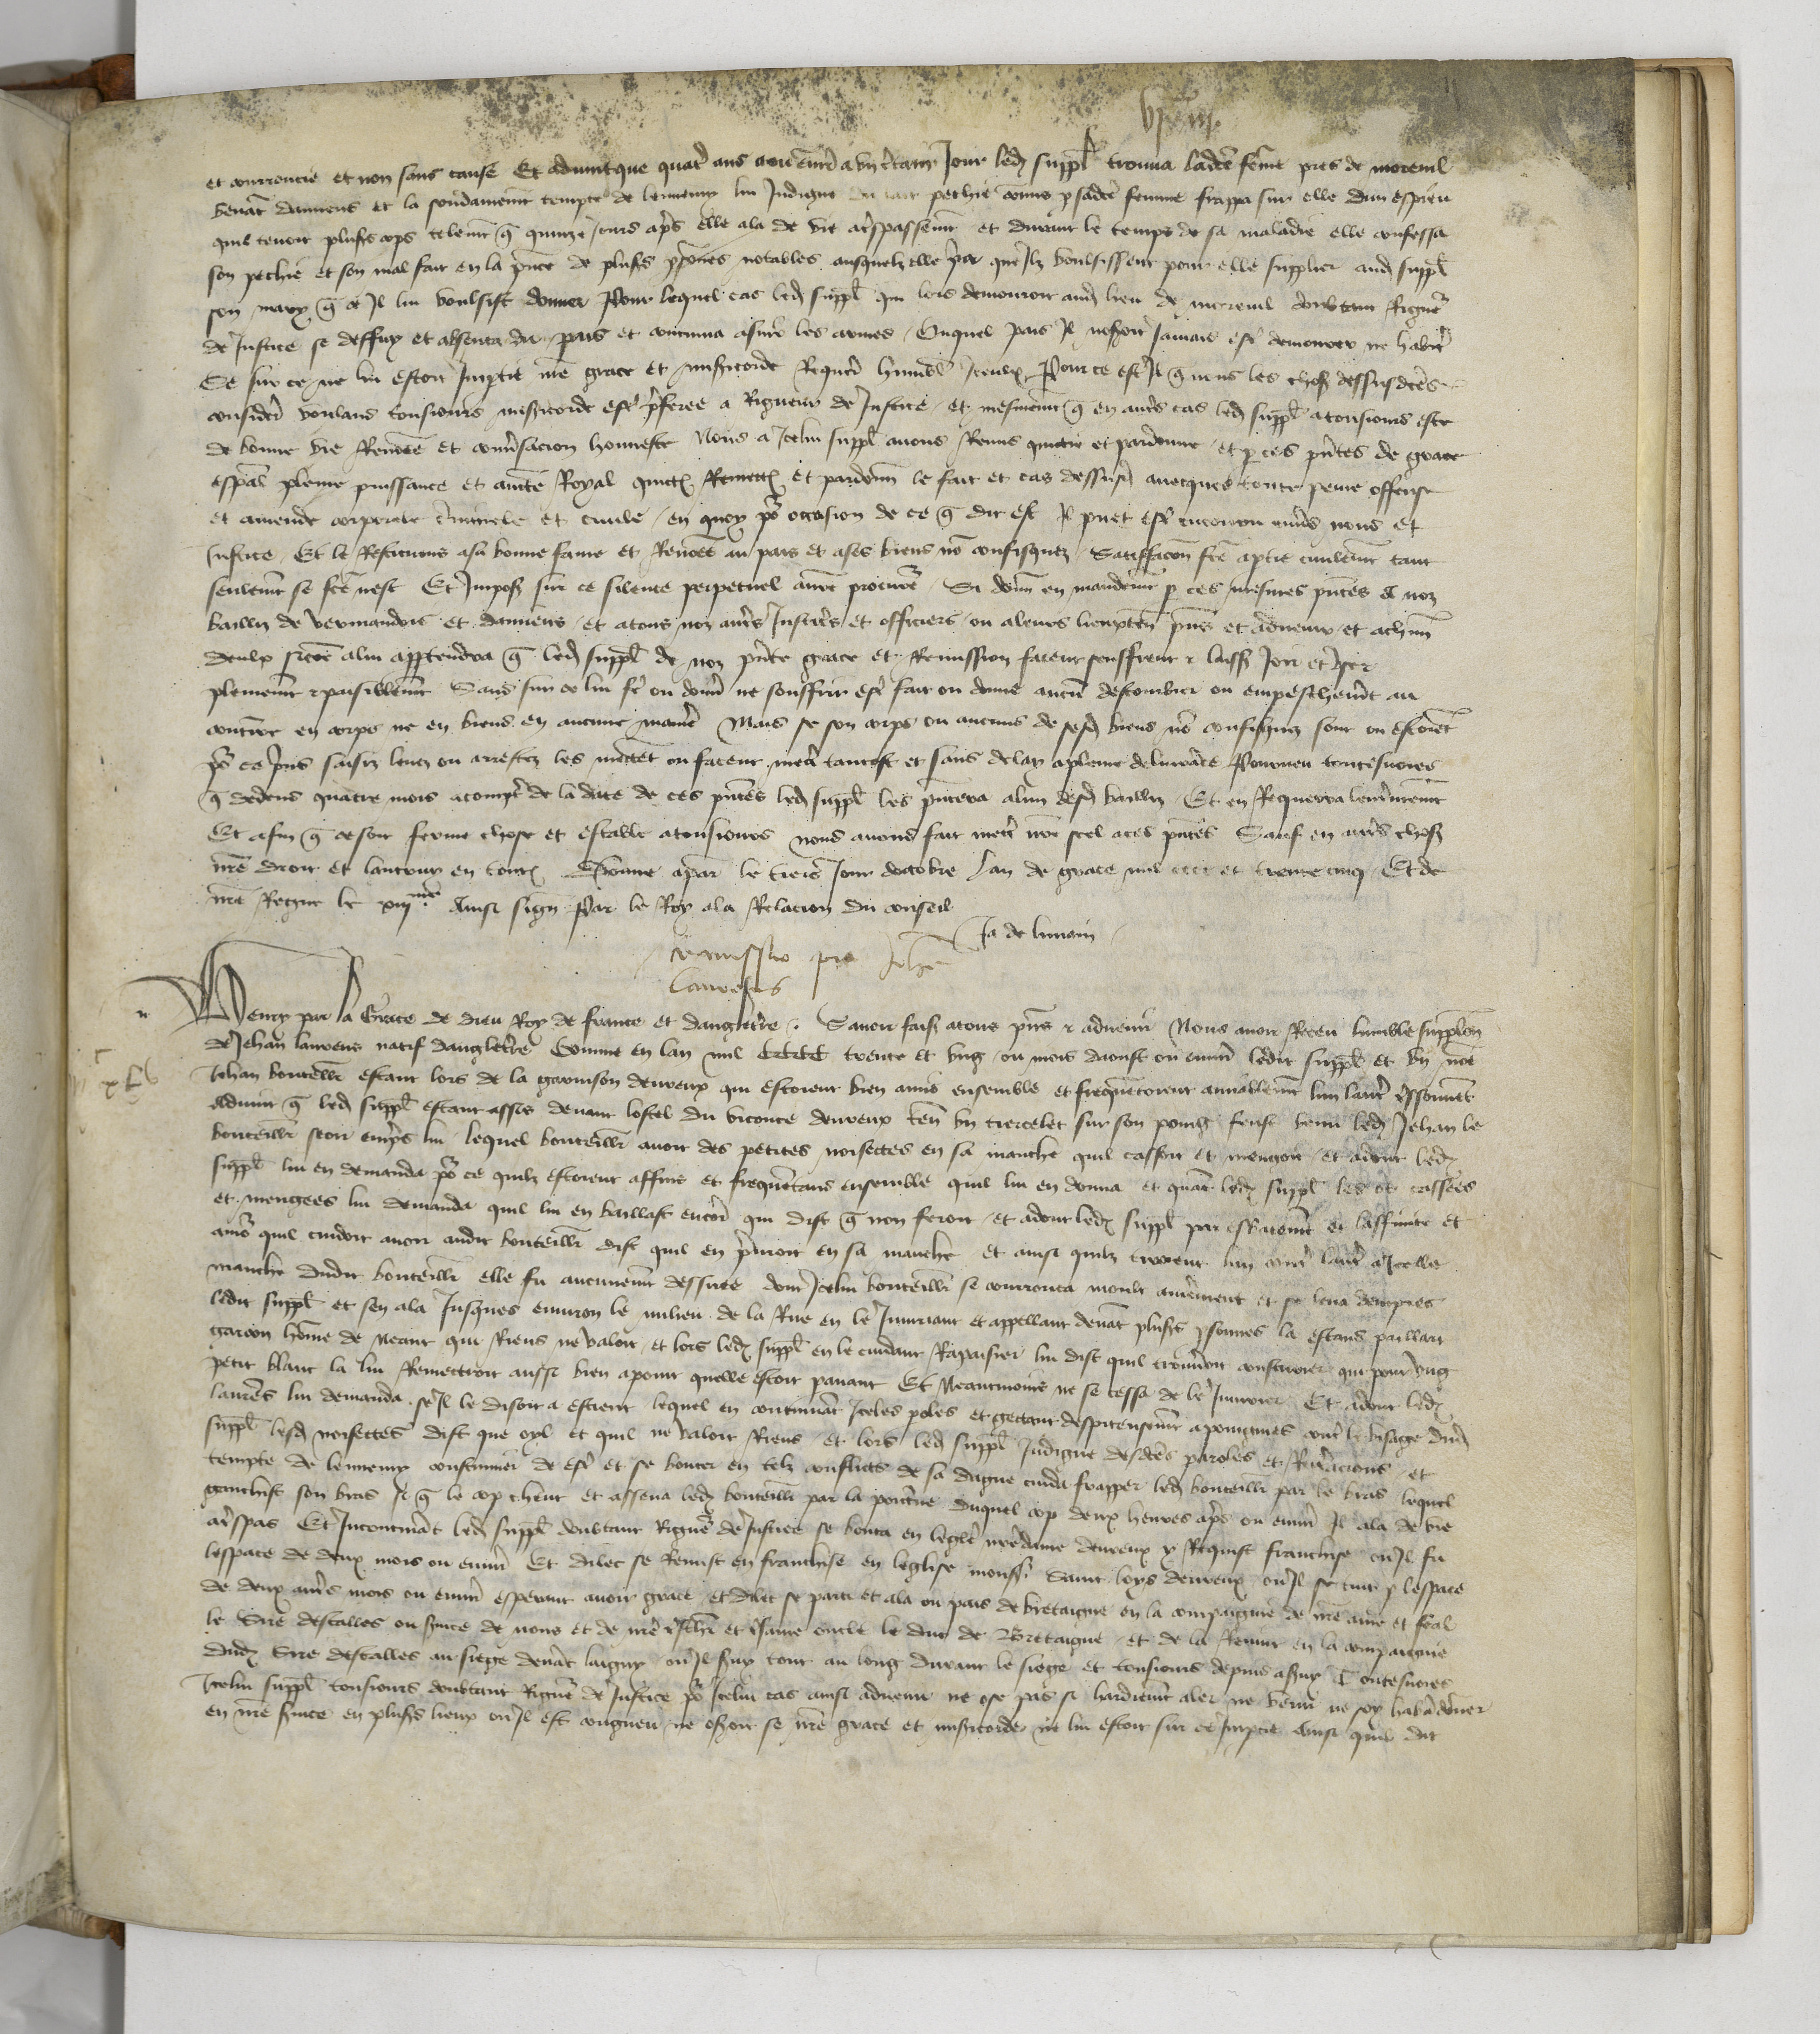 et courroucie et non sans cause Et advint que quatr ans a ou envird a un certain Jour led suppl trouva ladce feme pres de moreul
venat damiens et la soudainemt tempte de lennemy lui Indigne du pechie comis p sadce femme frappa sur elle dun espieu
quil tenoit plusrs cops telemt q quinze jours aprs elle ala de vie a trespassemt et durant le temps de sa maladie elle confessa
son pechie et son mal fait en la pnce de plusrs psones notables ausquelz elle pria que Ilz voulsissent pour elle supplier aud suppl
son mary q ce Il lui voulsist donner Pour lequel cas led suppl qui lors demouroit aud lieu de moreul doubtant Rigueur
de Justice se deffuy et absenta du pais et continua a suir les armes Ouquel pais Il noseroit Jamais estr demourer ne habitr
Se sur ce ne lui estoit Impartie nre grace et misericorde Requerat humblemt Iceulx Pour ce est Il q nous les choses dessusdces
considere voulans tousiours misericorde estr preferee a Rigueur de Justice et mesmemt q en autrs cas led suppl a tousiours este
de bonne vie Renomee et conversacion honneste Nous a Icelui suppl avons Remis quictie et pardonne et p ces pntes de grace
espal pleine puissance et auctte Royal quictons Remettons et pardonn le fait et cas dessusd avecques toute peine offense
et amende corporele criminele et civile en quoy por occasion de ce q dit est Il puet estr encouru envrs nous et
Justice Et le Restituons a sa bonne fame et Renomee au pais et a ses biens non confisquez Satisfacon fce a ptie civilemt tant
seulemt se fce nest Et Imposs sur ce silence perpetuel a nre procureur Si donn en mandemt p ces mesmes pntes A noz
bailliz de Vermandois et damiens et a tous noz autrs Justicrs et officiers ou a leurs lieuxten pns et advenir et a chun
deulx sicoe a lui appartendra q led suppl de noz pnte grace et Remission facent seuffrent et laissz Joir et user
plemement et paisiblemt Sans sur ce lui fe ou donner ne souffrir estr fait ou donne aucu destourbier ou empeschemt au
contrre en corps ne en biens en aucune manre Mais se son corps ou aucuns de sesd biens no confisquez sont ou estoient
por ce pris saisiz levez ou arrestez les mettet ou facent mettr tantost et sans delay a pleine delivrance Pourveu toutesvoies
q dedens quatre mois a comptr de la date de ces pntes led suppl les pntera a lun desd bailliz Et en Requerra lenterinemt
Et afin q ce soit ferme chose et estable a tousiours nous avons fait mettr nre scel a ces pntes Sauf en autrs choses
nre droit et lautruy en toutes Donne a paris le tiers Jour doctobre Lan de grace mil cccc et trente cinq Et de
nre Regne le xiijme Ainsi signe Par le Roy a la Relacion du conseil
Ja de lunain
remissio pro Johe
laurens
Henry par la Grace de dieu Roy de france et dangleterre Savoir fais a tous pns et advenir Nous avoir Receu lumble supplicon
de Jehan laurens natif dangleterre Comme en lan mil CCCC trente et ung ou mois daoust ou environ ledit suppl et un nomme
Jehan bouteillr estans lors de la garnison devreux qui estoient bien amis ensemble et frequentoient amiablemt lun lautre
Advint q led suppl estant assis devant lostel du viconte devreux ten un tiercelet sur son poing feust venu led Jehan le
bouteillr seoir empres lui lequel bouteillr avoit des petites noisectes en sa manche quil cassoit et mengoit et adont led
suppl lui en demanda por ce quilz estoient affins et frequentans ensemble quil lui en donna et quat led suppl les ot cassees
et mengees lui demanda quil lui en baillast encore qui dist q non feroit et adont led suppl par esbatemt et laffinite et
amor quil cuidoit avoir audit bouteillr dist quil en prendroit en sa manche et ainsi quilz tiroient lun contr lautr a Icelle
manche dudit bouteillr elle fu aucunemt dessiree dont Icelui bouteillr se courrouca moult amerement et se leva dempres
ledit suppl et sen ala Jusques environ le milieu de la Rue en le Injuriant et appellant devat plusrs psonnes la estans paillart
garcon home de Neant qui Riens ne valoit et lors led suppl en le cuidant Rapaisier lui dist quil trouveroit cousturier qui pour ung
petit blanc la lui Remettroit aussi bien a point quelle estoit pavant Et Neantmoins ne se cessa de le Injurier Et adont led
laurens lui demanda se Il le disoit a escient lequel en continuat Iceles poles et gectant despiteusemt a poingnies contr le visage dud
suppl lesd noisectes dist que oyl et quil ne valoit Riens et lors led suppl Indigne desdces paroles et et
tempte de lennemy coustumier de estr et se bouter en telz conflicts de sa dague cuida frapper led bouteillr par le bras lequel
ganchist son bras si q le cop cheut et assena led bouteillr par la poictrine duquel cop deux heures aprs ou environ Il ala de vie
a trespas Et Incontinat led suppl doubtant Rigueur de Justice se bouta en leglise nre dame devreux y Requist franchise ou Il fu
lespace de deux mois ou environ Et dilec se Remist en franchise en leglise monss Saint loys devreux ou Il se tint p lespace
de deux autrs mois ou environ esperant avoir grace et dilec se parti et ala ou pais de bretaigne en la compaignie de nre ame et feal
le Sire descalles ou service de nous et de nre treschr et tresame oncle le duc de Bretaigne et de la Revint en la compaignie
dud Sire descalles au siege devat laigny ou Il servy tout au long durant le siege et tousiours depuis a servy Toutesvoies
Icelui suppl tousiours doubtant Rigueur de Justice por Icelui cas ainsi advenu ne ose pas si hardiemt aler ne venir ne soy habandonner
en nre service en plusrs lieux ou Il est congneu ne oseroit se nre grace et misericorde ne lui estoit sur ce Impartie Ainsi quil dit